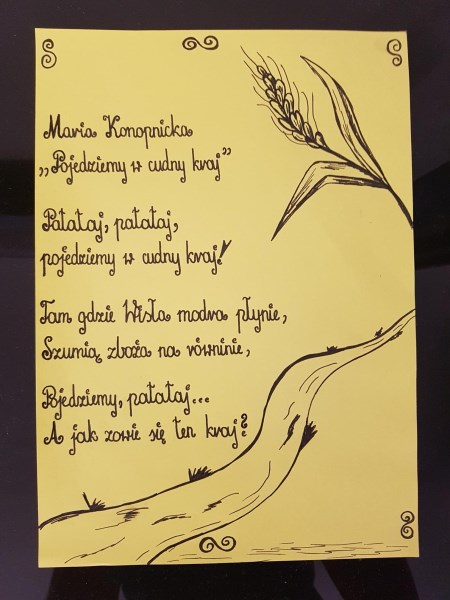 Maria Konopnicka
„Pojedziemy w cudny kraj”
Patataj, patataj,
pojedziemy w cudny kraj!
Tam gdzie Wisła modra płynie,
Szumią zboża na równinie,
Pojedziemy, patataj...
A jak zowie się ten kraj?